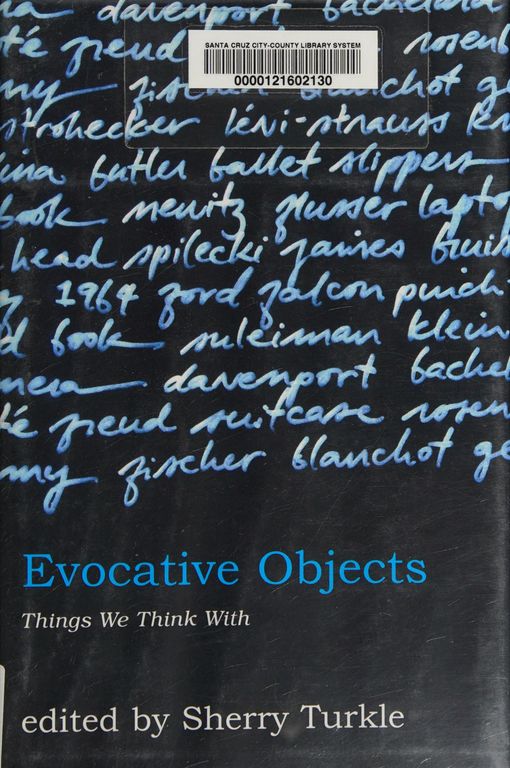 davenport bachelard
té freud rosenb
SANTA CRUZ CITY-COUNTY LIBRARY SYSTEM
0000121602130
my fischer blanchot ge
strohecker lévi-strauss
ina butler ballet slippers
book newitz flusser lapto
head spilecki james
1964 ford falcon punch
d book suleiman klein
mera davenport bachel
té freud suitcase rosen
my fischer blanchot ge
Evocative Objects
Things We Think With
edited by Sherry Turkle